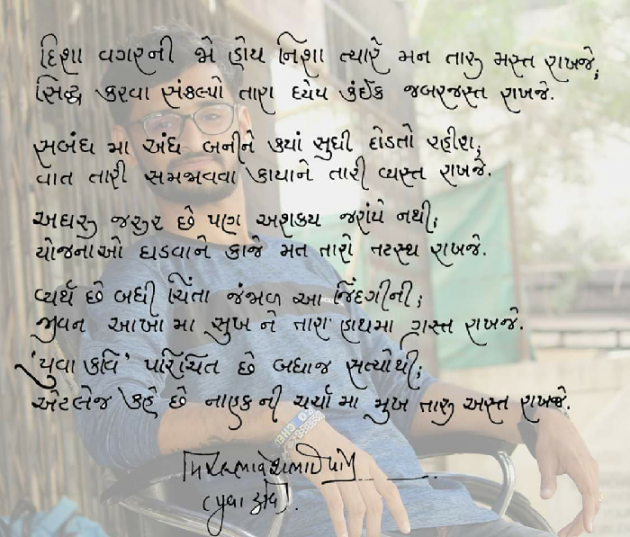 દિશા વગરની જો હોય નિશા ત્યારે મન તારુ મસ્ત રાખજે;
સિદ્ધ કરવા સંકલ્પો તારા ધ્યેય કંઈક જબરજસ્ત રાખજે.
સબંધ મા અંધ બનીને ક્યાં સુધી દોડતો રહીશ;
વાત તારી સમજાવવા કાયાને તારી વ્યસ્ત રાખજે.
અઘરુ જરુર છે પણ અશક્ય જરાંયે નથી;
યોજનાઓ ઘડવાને કાજે મત તારો તટસ્થ રાખજે.
વ્યર્થ છે બધી ચિંતા જંજાળ આ જિંદગીની;
જીવન આખાં મા સુખ ને તારા હાથમા ગ્રસ્ત રાખજે.
'યુવા કવિ' પરિચિત છે બધાજ સત્યોથી;
એટલેજ કહે છે નાહક ની ચર્ચા મા મુખ તારુ અસ્ત રાખજે.
(યુવા કવિ).